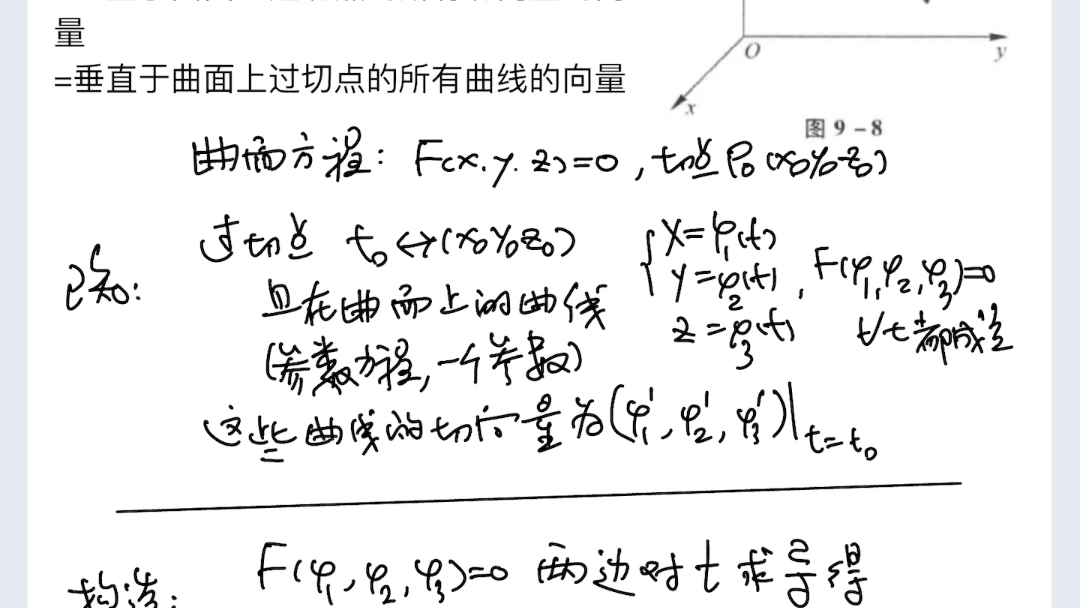 量
=垂直于曲面上过切点的所有曲线的向量
O
y
x
图 9-8
曲面方程: F(x.y.z)=0, 切点 P₀(x₀y₀z₀)
已知:
过切点 t₀↔(x₀y₀z₀)
且在曲面上的曲线
(参数方程,一个参数)
{x=φ₁(t)
y=φ₂(t), F(φ₁,φ₂,φ₃)=0
z=φ₃(t) ∀t都成立
这些曲线的切向量为(φ₁′,φ₂′,φ₃′)|t=t₀
构造: F(φ₁,φ₂,φ₃)=0 两边对t求导得